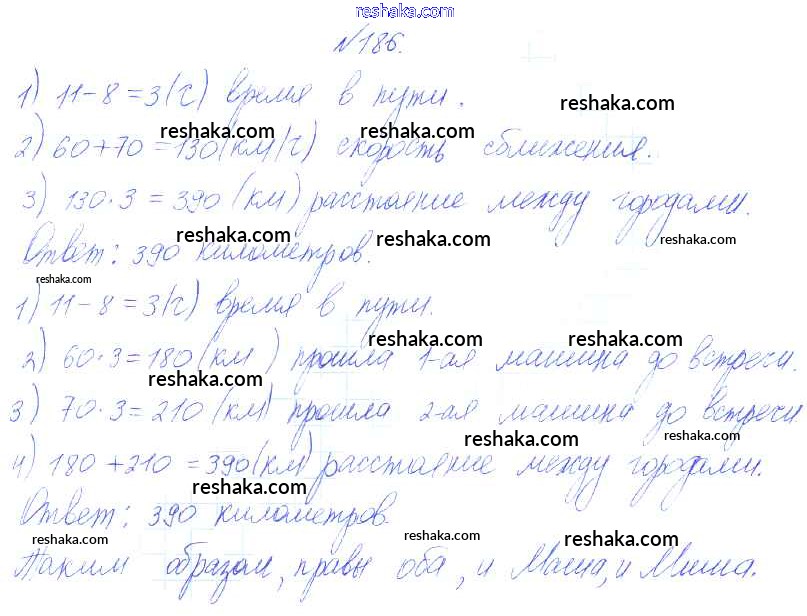 reshaka.com
№186.
1) 11-8=3(ч) время в пути.
reshaka.com
reshaka.com reshaka.com
2) 60+70=130(км/ч) скорость сближения.
3) 130·3=390 (км) расстояние между городами.
reshaka.com reshaka.com reshaka.com
Ответ: 390 километров.
reshaka.com
1) 11-8=3(ч) время в пути.
reshaka.com reshaka.com
2) 60·3=180(км) прошла 1-ая машина до встречи.
reshaka.com
3) 70·3=210(км) прошла 2-ая машина до встречи.
reshaka.com reshaka.com
4) 180+210=390(км) расстояние между городами.
reshaka.com
Ответ: 390 километров.
reshaka.com reshaka.com reshaka.com
Таким образом, правы оба, и Маша, и Миша.